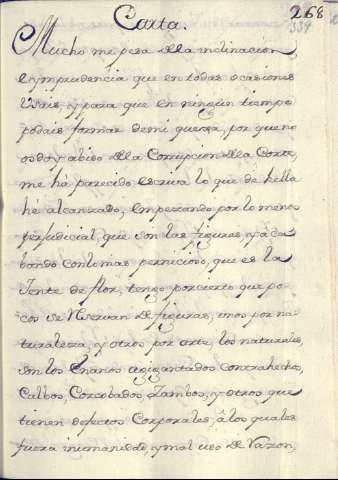 268
339
Carta.
Mucho me pesa della inclinacion,
e ymprudencia que en todas ocasiones
Usais, y para que en ningun tiempo
podais formar de mi quexa, por que no
os doy abiso della Corrupcion della Corte,
me há parecido escriviros lo que de hella
hé alcanzado, Empezando por lo menos
perjudicial, que son las figuras, y áca
bando con lo mas pernicioso, que es la
Jente de flor, tengo por cierto que po
cos se Reservan de figuras, unos por na
turaleza, y otros por arte, los naturales
son los Enanos agigantados Contrahechos,
Calbos, Corcobados, Zambos, y otros que
tienen defectos Corporales, â los quales
fuera inimanidad, y mal uso de Razon,